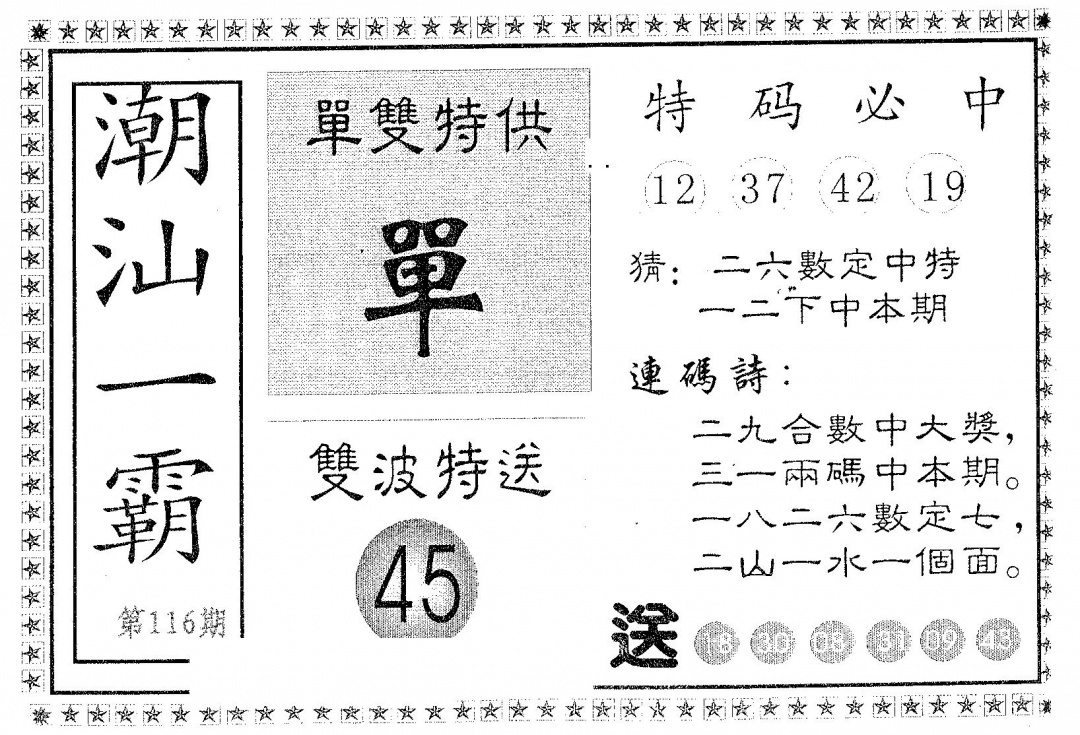 潮汕一霸
第116期
單雙特供
單
雙波特送
45
特码必中
12 37 42 19
猜：二六數定中特
一二下中本期
連碼詩：
二九合數中大獎，
三一兩碼中本期。
一八二六數定七，
二山一水一個面。
送 18 30 08 31 09 43